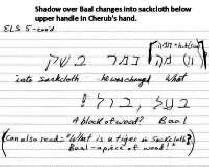 Shadow over Baal changes into sackcloth below
upper handle in Cherub's hand.
ELS 5-cont'd
מה נמר בשק
into sackcloth he was changed What
בעל, בול!
A block of wood? Baal
(Can also read: "What is a tiger in Sackcloth?
Baal - a piece of wood!"